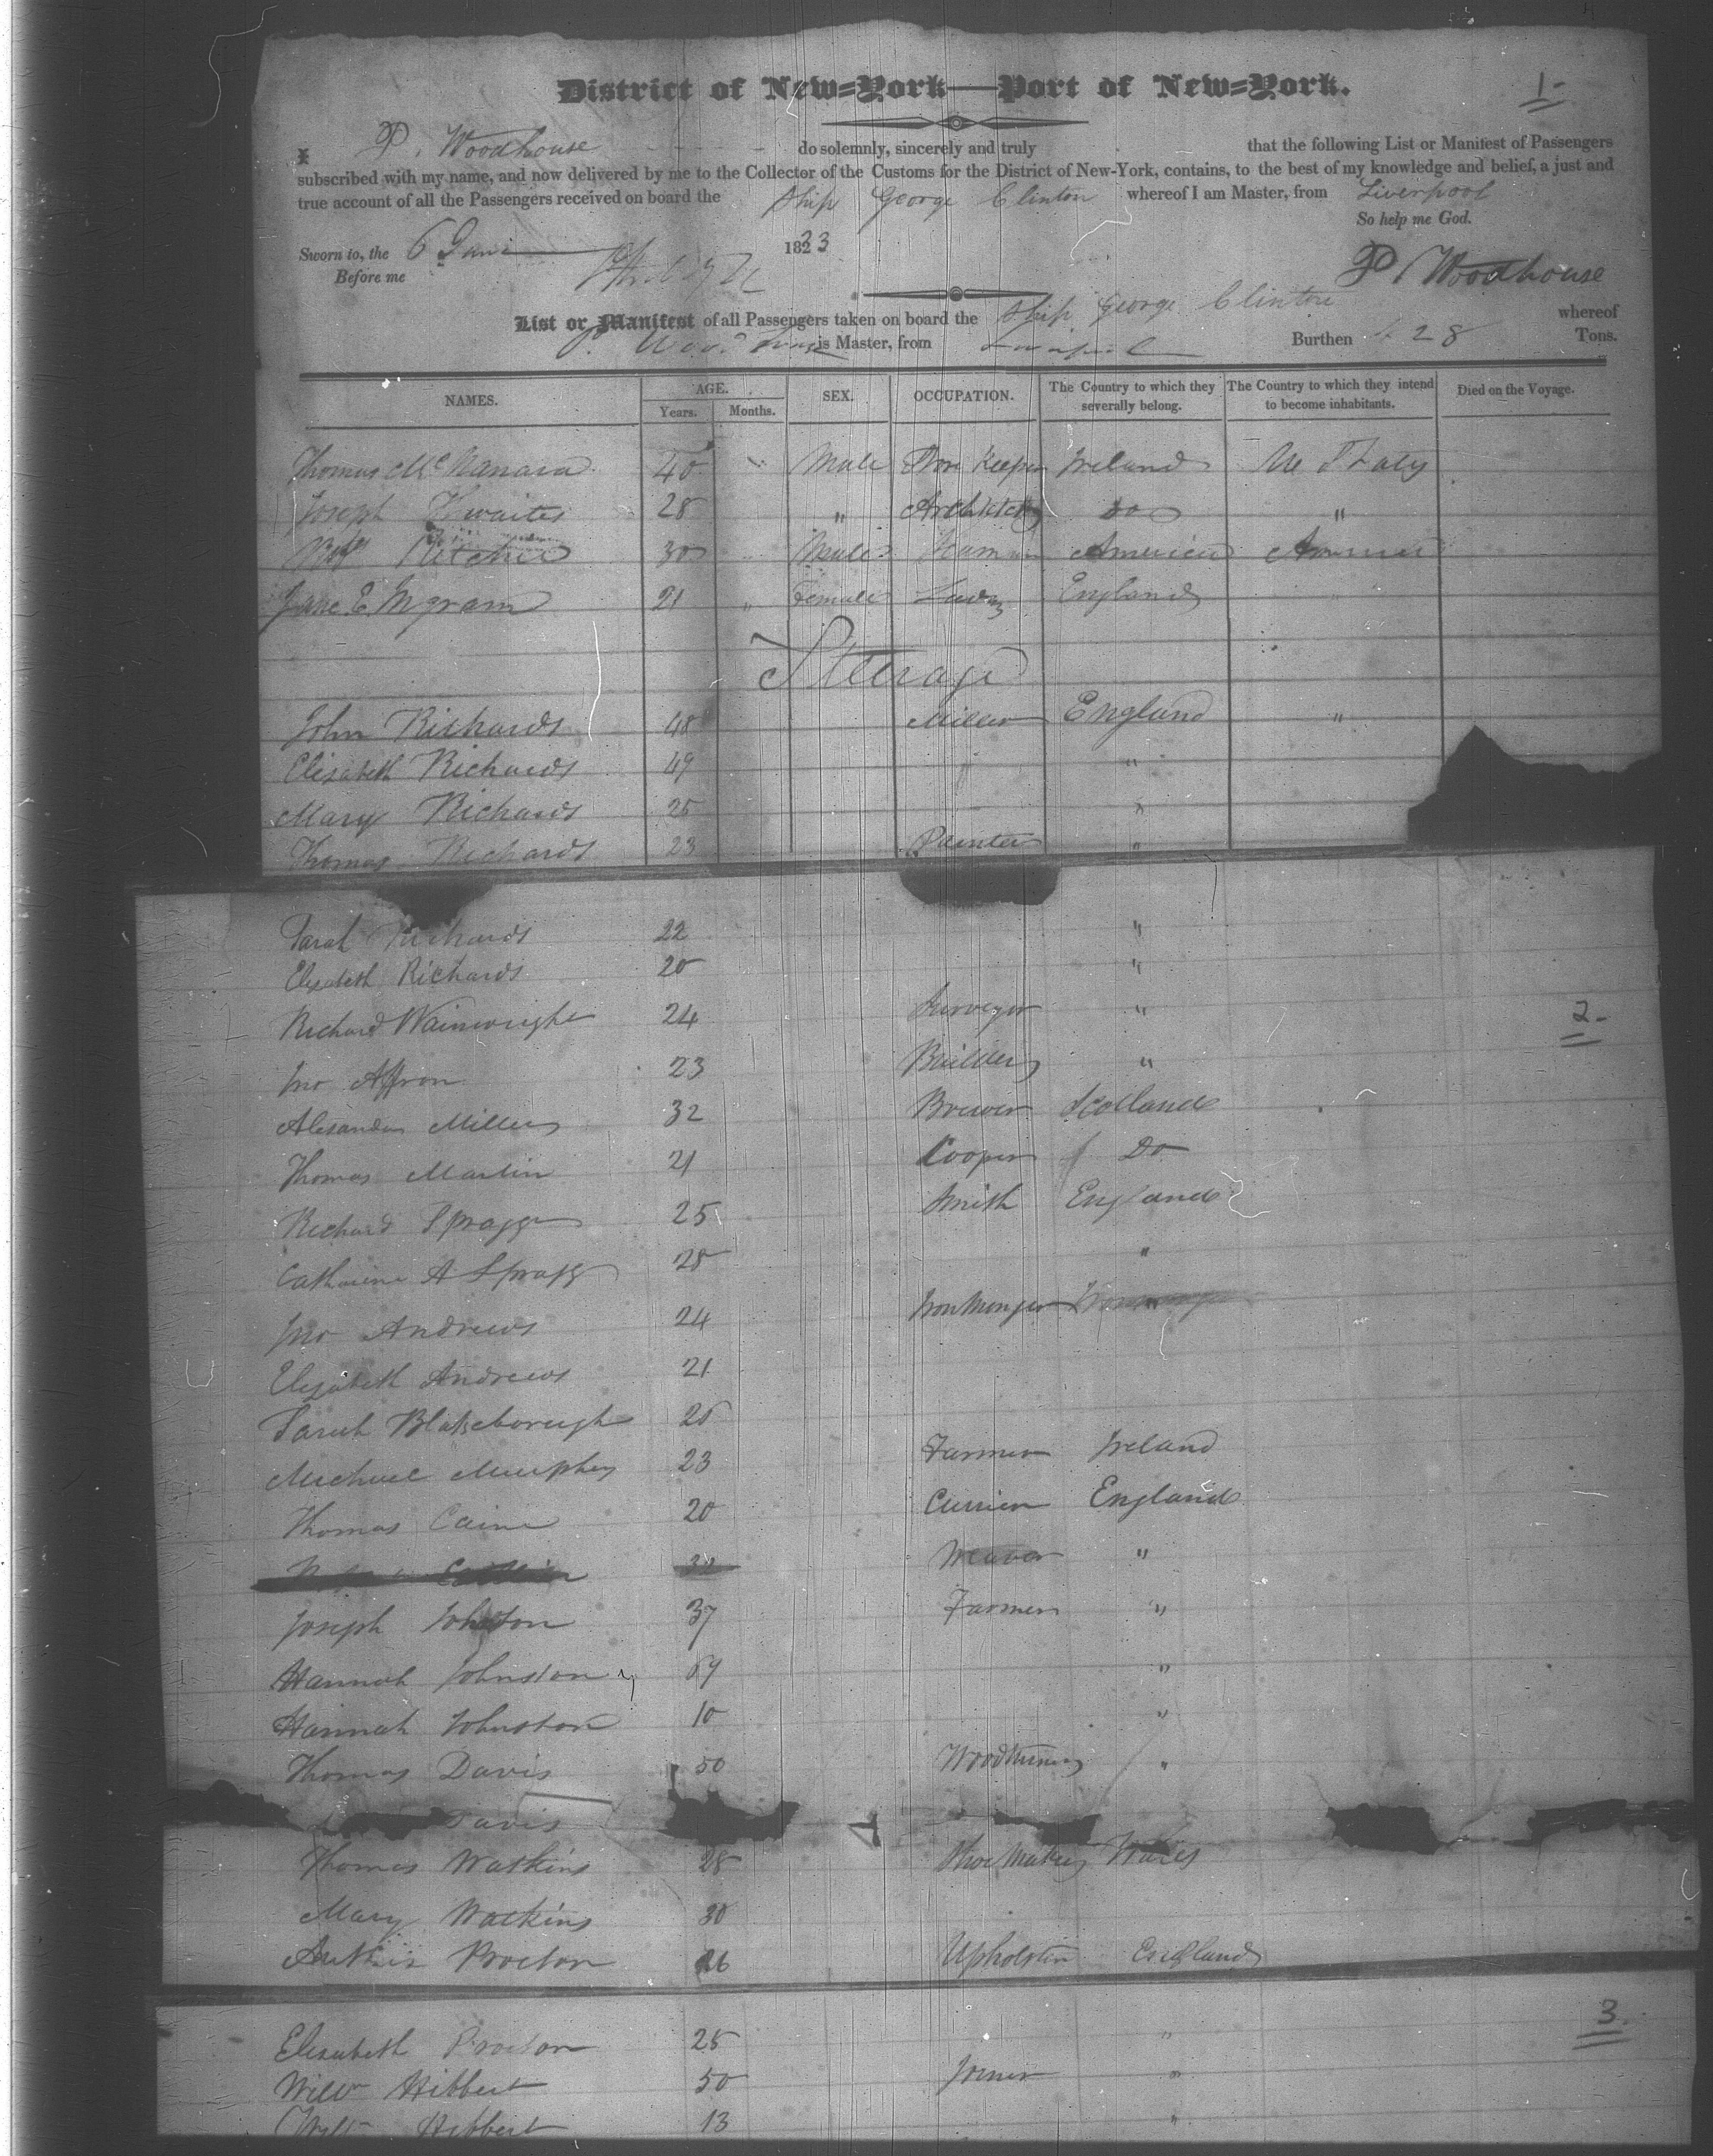 District of New=York—Port of New=York.
1-
I P. Woodhouse do solemnly, sincerely and truly that the following List or Manifest of Passengers
subscribed with my name, and now delivered by me to the Collector of the Customs for the District of New-York, contains, to the best of my knowledge and belief, a just and
true account of all the Passengers received on board the Ship George Clinton whereof I am Master, from Liverpool
So help me God.
Sworn to, the 6 June 1823
Before me
P Woodhouse
List or Manifest of all Passengers taken on board the Ship George Clinton whereof
P. Woodhouse is Master, from Liverpool Burthen 428 Tons.
NAMES. AGE. SEX. OCCUPATION. The Country to which they severally belong. The Country to which they intend to become inhabitants. Died on the Voyage.
Years. Months.
Thomas McNamara 40 Male Store Keeper Ireland
Joseph Thwaites 28 " Architect Do "
Ritchie 30 Male America America
Jane E. Ingram 21 " Female Lady England "
Steerage
John Richards 48 Miller England "
Elizabeth Richards 49 "
Mary Richards 25 "
Thomas Richards 23 Painter "
Sarah Richards 22 "
Elizabeth Richards 20 "
2-
Richard Wainwright 24 Surveyor "
Jno 23 Builder "
Alexander Miller 32 Brewer Scotland
Thomas Martin 21 Cooper Do
Richard Spragg 25 Smith England
Catharine A Spragg 28 "
Jno Andrews 24 Iron Monger "
Elizabeth Andrews 21
Sarah Blakeborough 26
Michael Murphy 23 Farmer Ireland
Thomas Caine 20 Currier England
32 Weaver "
Joseph Johnston 37 Farmer "
Hannah Johnston "
Hannah Johnston 10 "
Thomas Davis 50 Woodturner "
Davis
Thomas Watkins 28 Shoe Maker Wales
Mary Watkins 30
Procton 26 Upholster England
3.
Elizabeth Procton 25 "
Willm Hibbert 50 Joiner "
Willm Hibbert 13 "